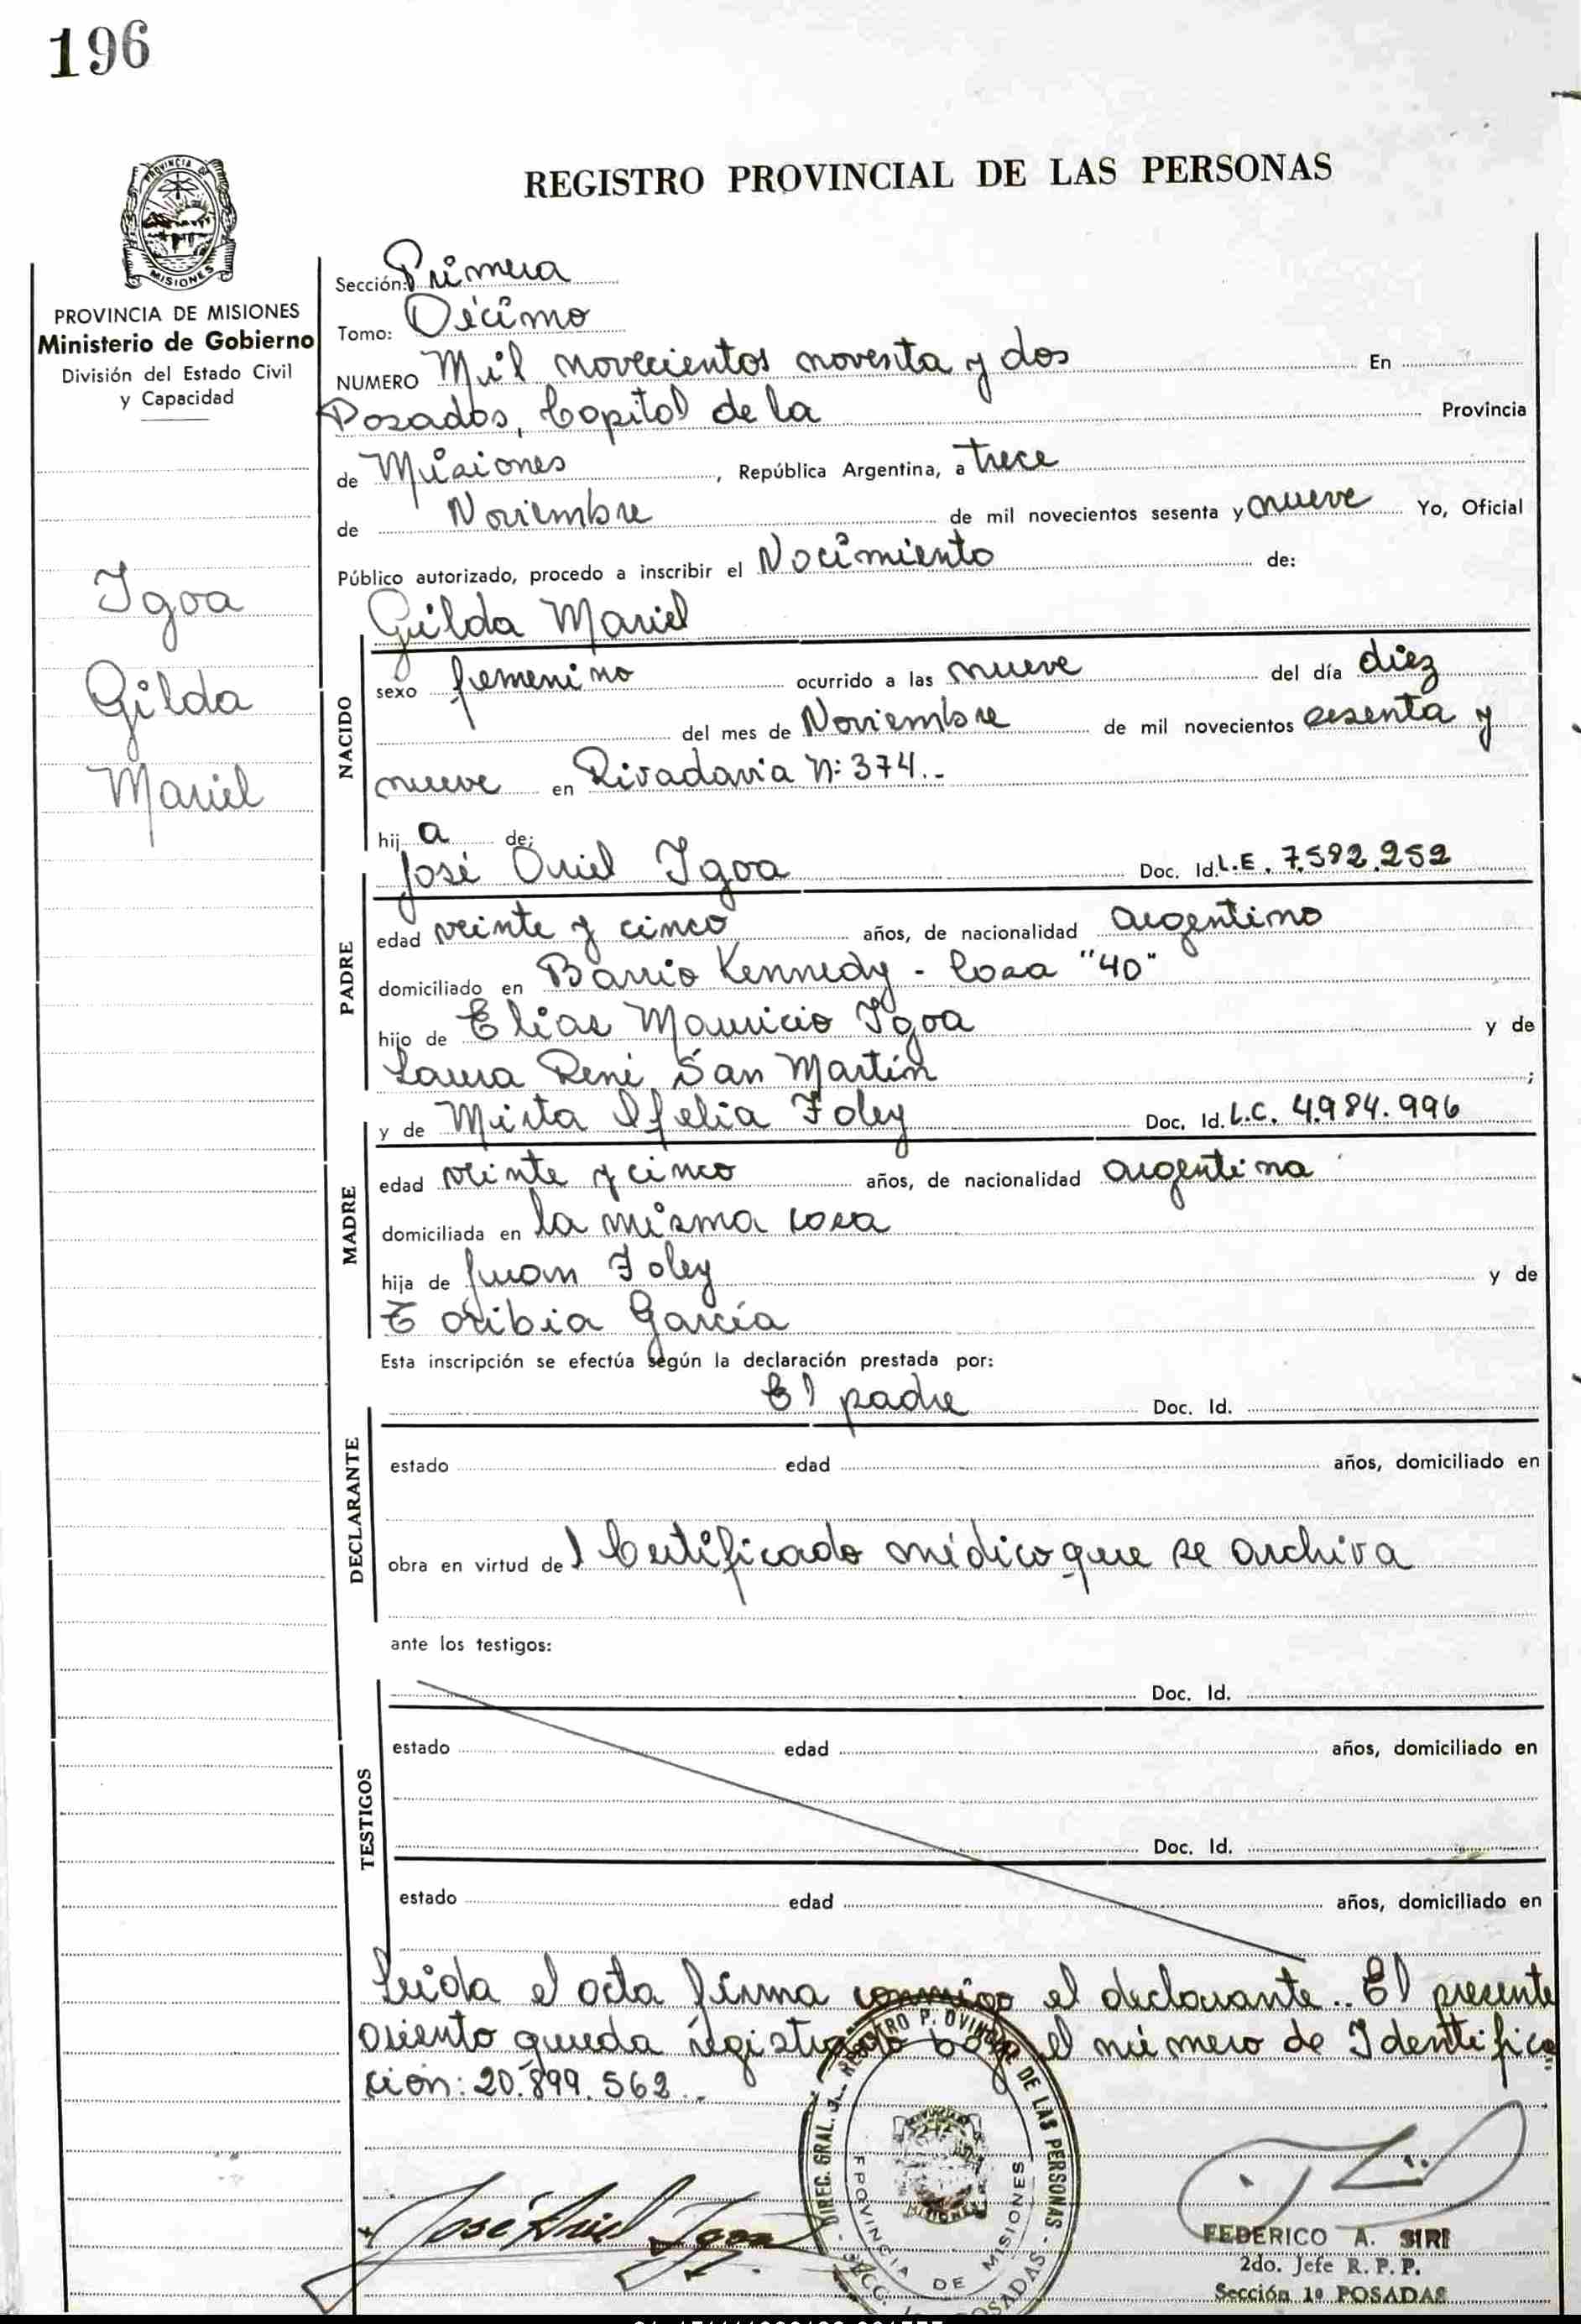 196
REGISTRO PROVINCIAL DE LAS PERSONAS
PROVINCIA DE
MISIONES
PROVINCIA DE MISIONES
Ministerio de Gobierno
División del Estado Civil
y Capacidad
Igoa
Gilda
Mariel
Sección: Primera
Tomo: Décimo
NUMERO Mil novecientos noventa y dos En
Posadas, Capital de la Provincia
de Misiones, República Argentina, a trece
de Noviembre de mil novecientos sesenta y nueve Yo, Oficial
Público autorizado, procedo a inscribir el Nacimiento de:
Gilda Mariel
NACIDO
sexo femenino ocurrido a las nueve del día diez
del mes de Noviembre de mil novecientos sesenta y
nueve en Rivadavia N: 374..-
hij a de:
José Oriel Igoa Doc. Id. L.E. 7.592.252
PADRE
edad veinte y cinco años, de nacionalidad argentino
domiciliado en Barrio Kennedy - Casa "40"
hijo de Elias Mauricio Igoa y de
Laura René San Martín ;
y de Mirta Ofelia Foley Doc. Id. L.C. 4.984.996
MADRE
edad veinte y cinco años, de nacionalidad argentina
domiciliada en la misma casa
hija de Juan Foley y de
Toribia García
Esta inscripción se efectúa según la declaración prestada por:
El padre Doc. Id.
DECLARANTE
estado edad años, domiciliado en
obra en virtud de l Certificado médico que se archiva
ante los testigos:
TESTIGOS
Doc. Id.
estado edad años, domiciliado en
Doc. Id.
estado edad años, domiciliado en
Leída el acta firma conmigo el declarante.. El presente
asiento queda registrado bajo el número de Identifica
ción: 20.899.562..-
DIREC. GRAL. REGISTRO PROVINCIAL DE LAS PERSONAS -
PROVINCIA DE MISIONES
MISIONES
POSADAS -
José Ariel Igoa
FEDERICO A. SIRI
2do. Jefe R.P.P.
Sección 1ª POSADAS